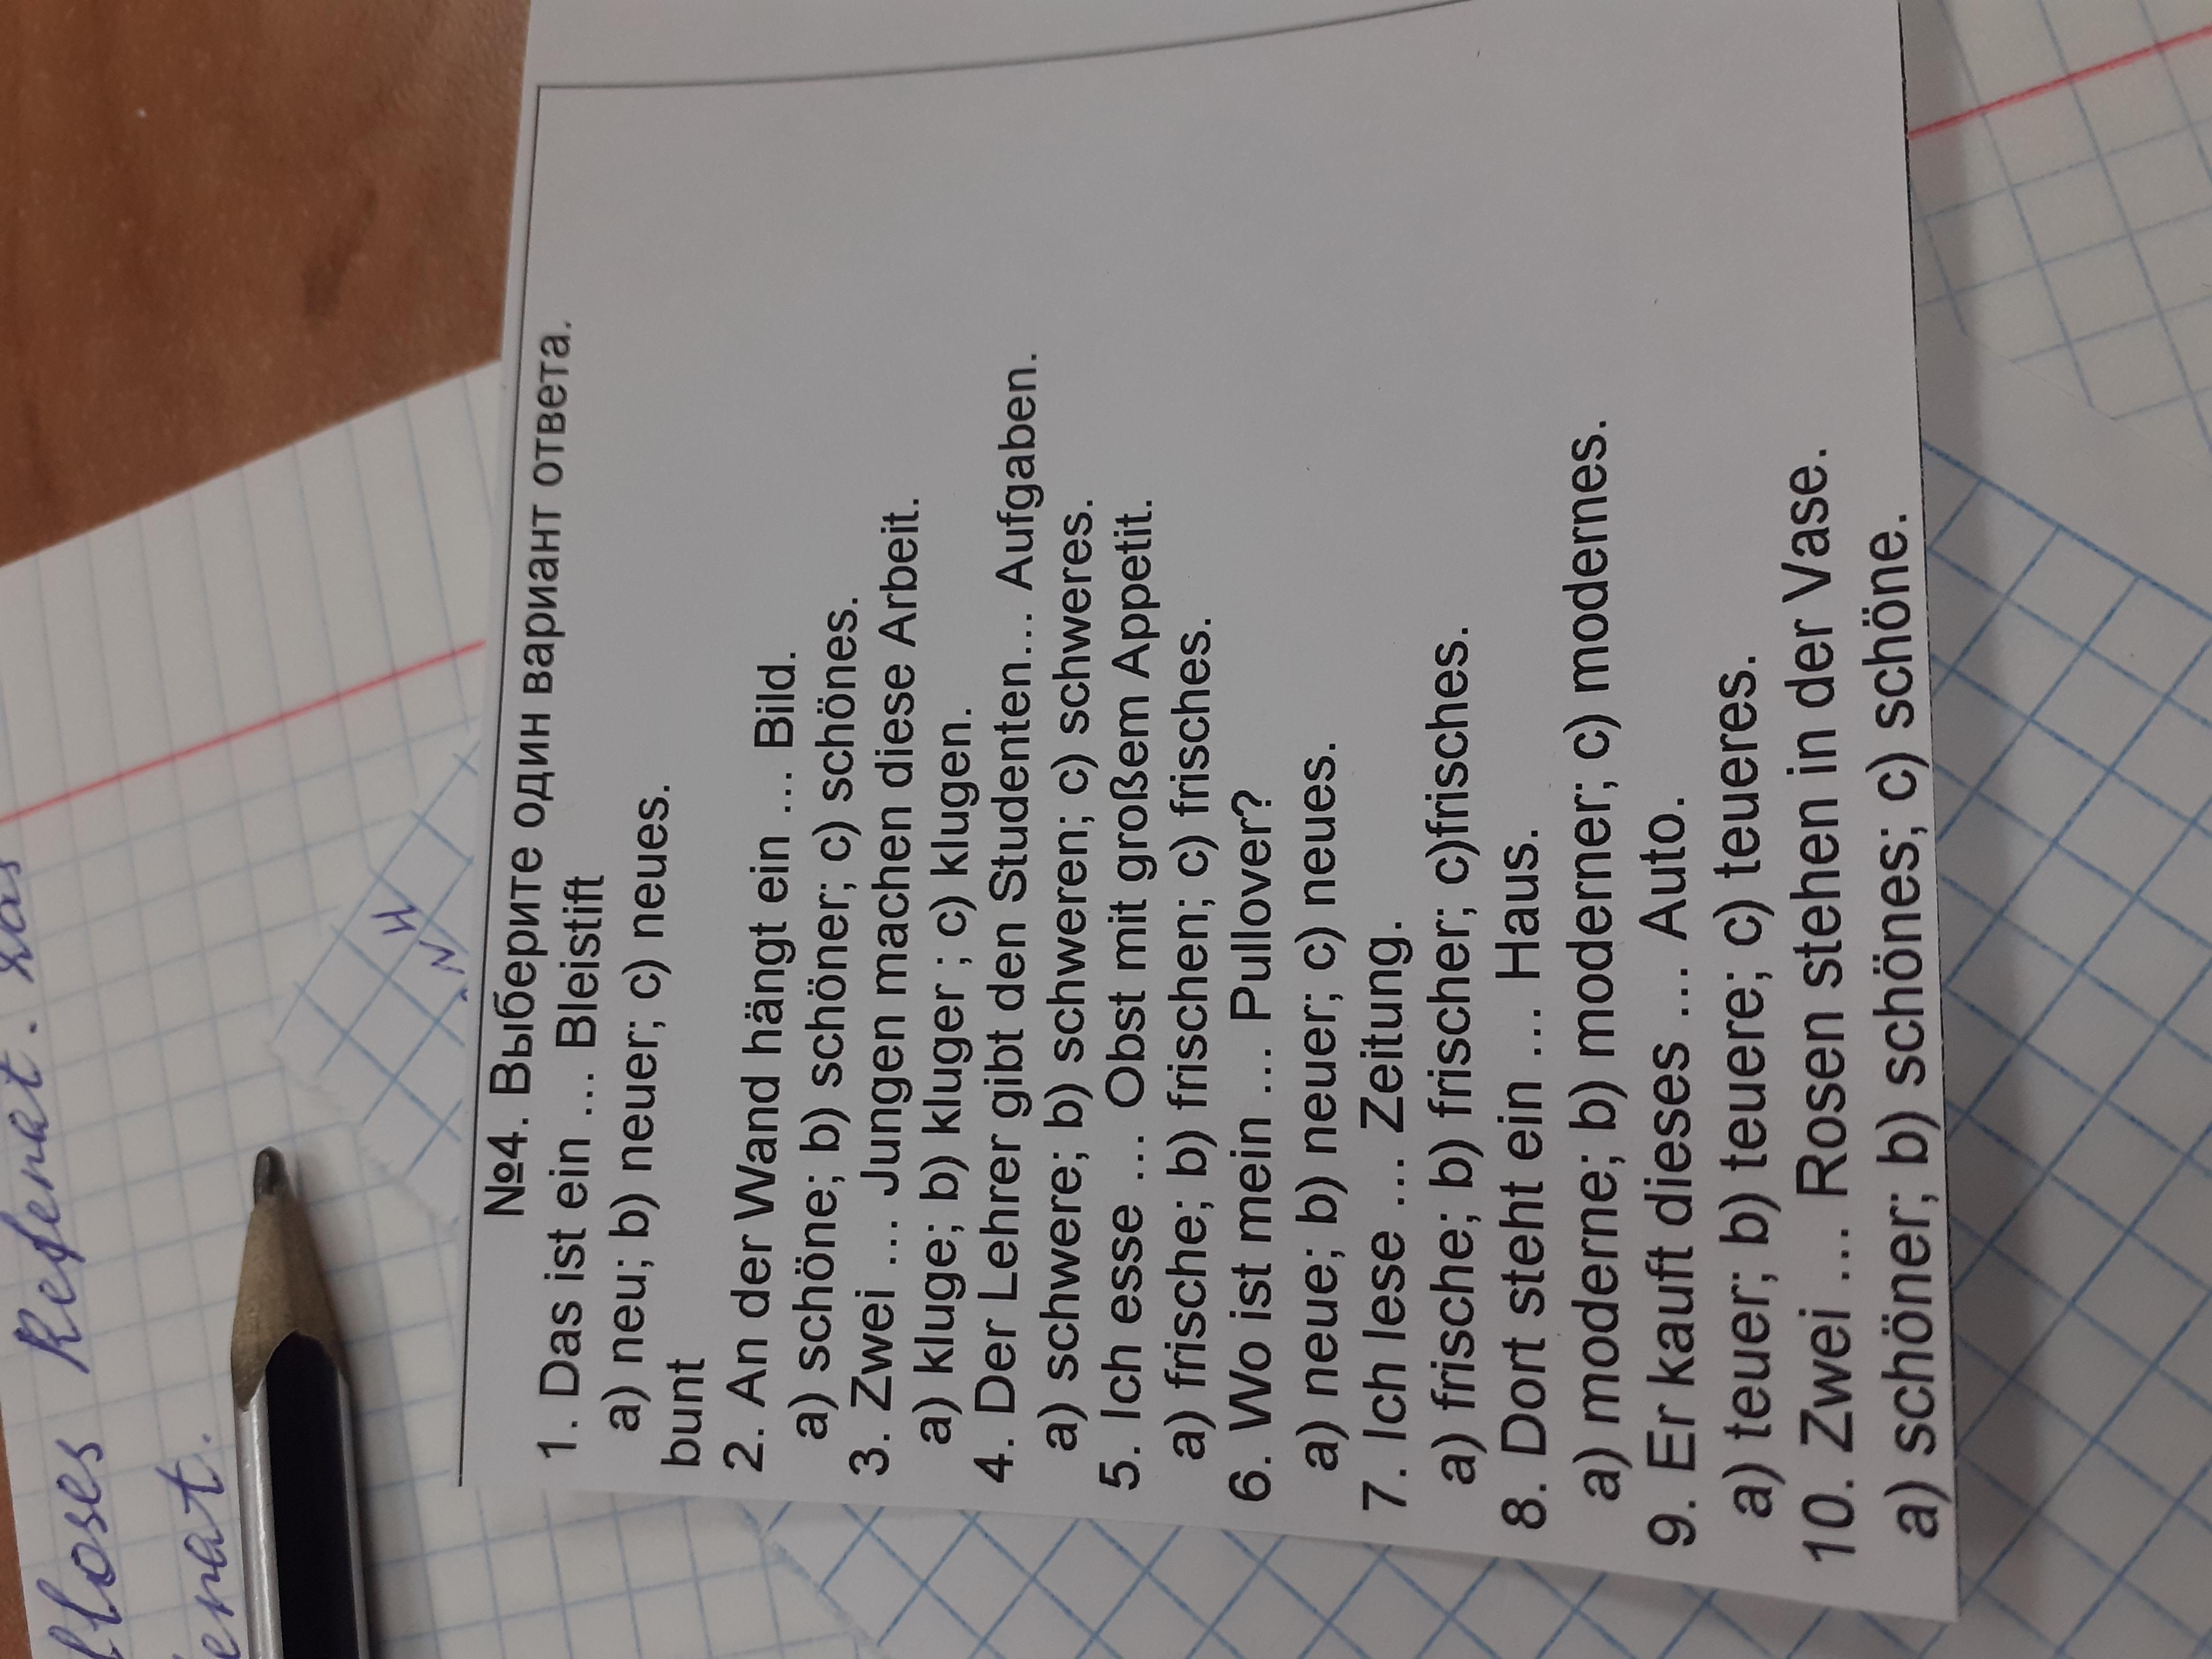 №4. Выберите один вариант ответа.
1. Das ist ein ... Bleistift
a) neu; b) neuer; c) neues.
bunt
2. An der Wand hängt ein ... Bild.
a) schöne; b) schöner; c) schönes.
3. Zwei ... Jungen machen diese Arbeit.
a) kluge; b) kluger ; c) klugen.
4. Der Lehrer gibt den Studenten... Aufgaben.
a) schwere; b) schweren; c) schweres.
5. Ich esse ... Obst mit großem Appetit.
a) frische; b) frischen; c) frisches.
6. Wo ist mein ... Pullover?
a) neue; b) neuer; c) neues.
7. Ich lese ... Zeitung.
a) frische; b) frischer; c)frisches.
8. Dort steht ein ... Haus.
a) moderne; b) moderner; c) modernes.
9. Er kauft dieses ... Auto.
a) teuer; b) teuere; c) teueres.
10. Zwei ... Rosen stehen in der Vase.
a) schöner; b) schönes; c) schöne.
Referat.